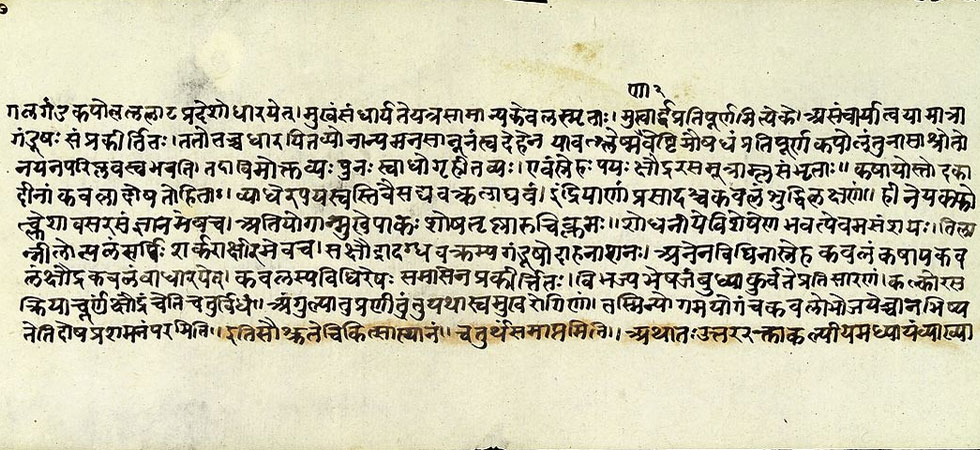 गलगंडकपोलललाटप्रदेशोधारयेत्। मुखंसंधार्यतेयत्रसामान्यकवलस्मृताः। मुखार्द्धप्रतिपूर्ण
गंडूषः संप्रकीर्त्तितः। ततोवच्चधारयितव्योनान्यमनसानूनंत्वदेहेन प्रतिपूर्ण
नयनपरिप्लवस्वभवति। तदाविमोक्तव्यः पुनःस्वाधोगृहीतव्यः। एवंस्नेहपयः क्षौद्ररसमूत्राम्लसंभृताः॥ कषायोस्तोदका
दीनां कवलादोषतोहिताः॥ व्याधेरपचयस्तुष्टि वक्त्रलाघवं। इंद्रियाणां प्रसादश्चकवलेशुद्धिलक्षणं॥ हीनेयकफो
त्क्लेशावसरसंज्ञानमेवच। अतियोगान्मुखेपाकः शोषतृष्णारुचिक्लमः॥ शोधनीयेविशेषेण भवत्येवमसंशयः। तिला
न्नीलोत्पलंसर्पिः शर्कराक्षीरमेवच। सक्षौद्रादग्धवक्त्रस्यगंडूषोदाहनाशनः। अनेनविधिनास्नेहकवलंकषायकव
लंक्षौद्रकवलंवाधारयेत्। कवलस्यविधिरेषः समासेनप्रकीर्त्तितः। विभज्यभेषजंबुध्याकुर्वतेप्रतिसारणं। कल्कोरस
क्रियाचूर्णंक्षौद्रंचेतिचतुर्विधं। अंगुल्यातुप्रणीतंतुयथास्वमुखरोगिणां। तस्मिन्योगमयोगंचकवलो
नेतिदोषप्रशमनंपरमिति। इतिसौश्रुतेचिकित्सास्थानं॥ चतुर्थंसमाप्तमिति॥ अथातःउत्तर कल्पीयमध्यायंव्याख्या